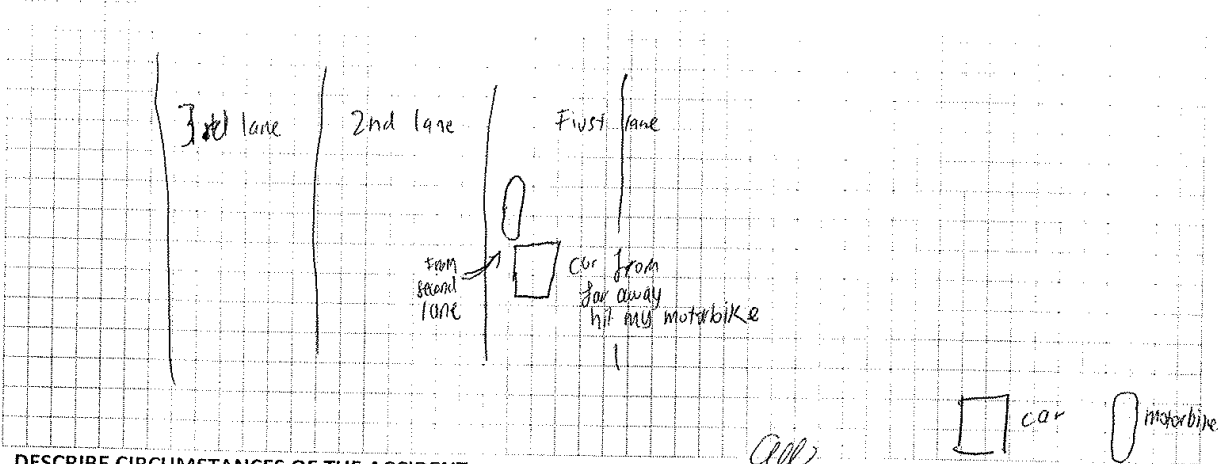 3rd lane
2nd lane
First lane
From
second
lane
car from
far away
hit my motorbike
car
motorbike
DESCRIBE CIRCUMSTANCES OF THE ACCIDENT